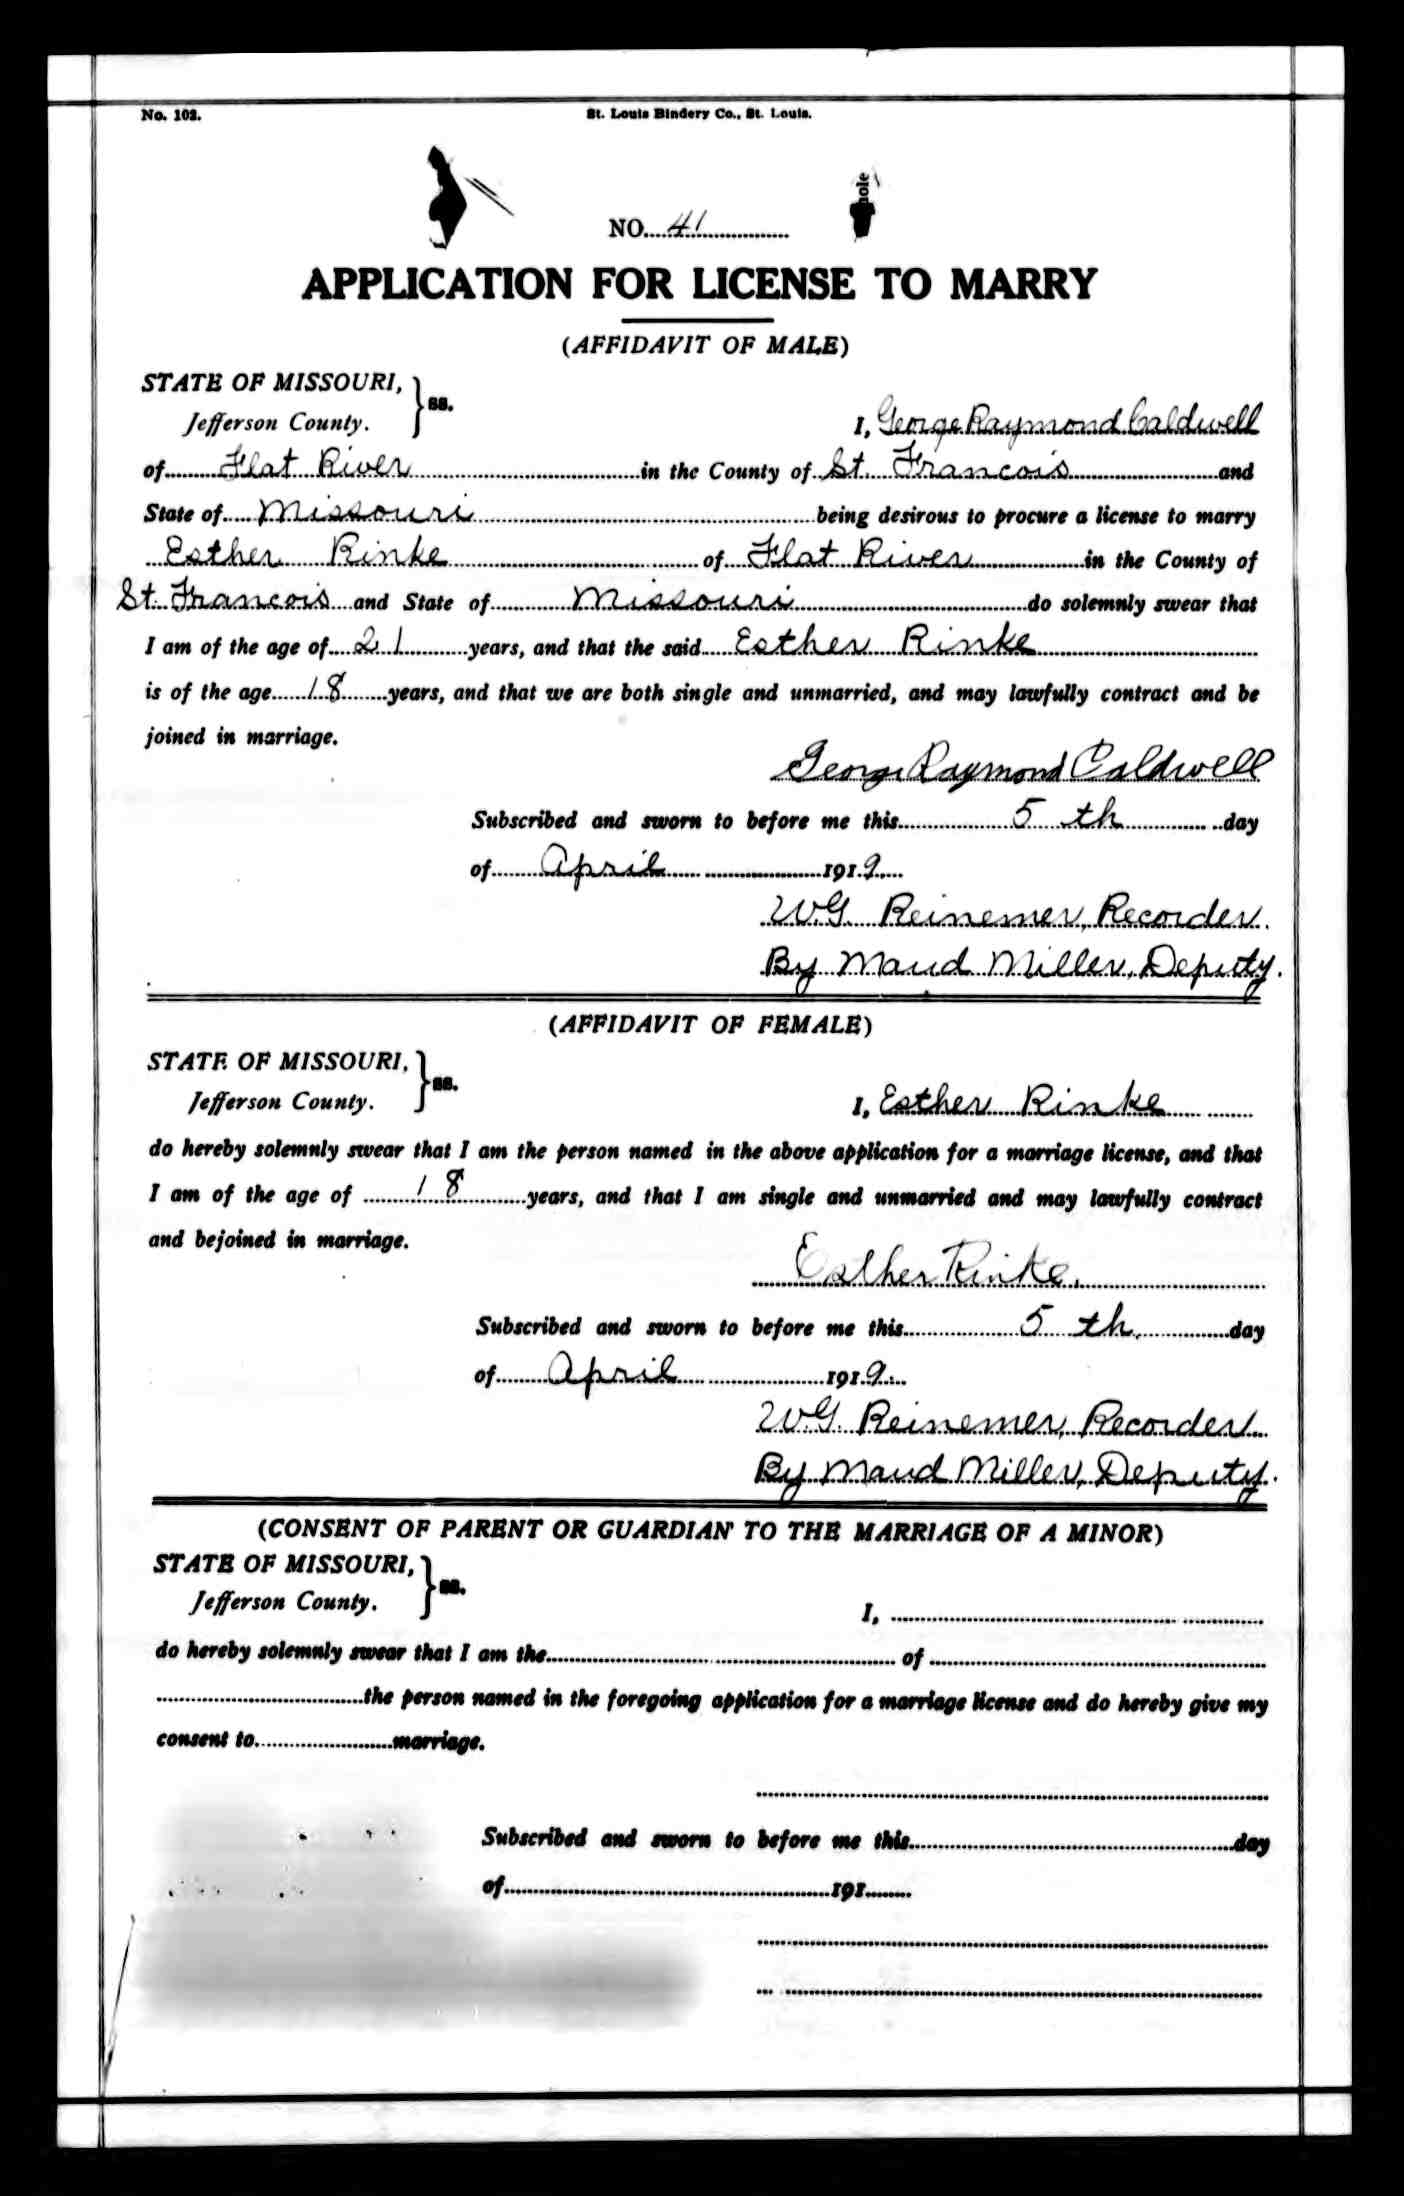 No. 102.
St. Louis Bindery Co., St. Louis.
NO. 41
APPLICATION FOR LICENSE TO MARRY
(AFFIDAVIT OF MALE)
STATE OF MISSOURI,
Jefferson County. } ss.
I, George Raymond Caldwell
of Flat River in the County of St. Francois and
State of Missouri being desirous to procure a license to marry
Esther Rinke of Flat River in the County of
St. Francois and State of Missouri do solemnly swear that
I am of the age of 21 years, and that the said Esther Rinke
is of the age 18 years, and that we are both single and unmarried, and may lawfully contract and be
joined in marriage.
George Raymond Caldwell
Subscribed and sworn to before me this 5th day
of April 1919.
W.G. Reinemer, Recorder.
By Maud Miller, Deputy.
(AFFIDAVIT OF FEMALE)
STATE OF MISSOURI,
Jefferson County. } ss.
I, Esther Rinke
do hereby solemnly swear that I am the person named in the above application for a marriage license, and that
I am of the age of 18 years, and that I am single and unmarried and may lawfully contract
and bejoined in marriage.
Esther Rinke.
Subscribed and sworn to before me this 5th. day
of April 1919.
W.G. Reinemer, Recorder.
By Maud Miller, Deputy.
(CONSENT OF PARENT OR GUARDIAN TO THE MARRIAGE OF A MINOR)
STATE OF MISSOURI,
Jefferson County. } ss.
I,
do hereby solemnly swear that I am the of
the person named in the foregoing application for a marriage license and do hereby give my
consent to marriage.
Subscribed and sworn to before me this day
of 191